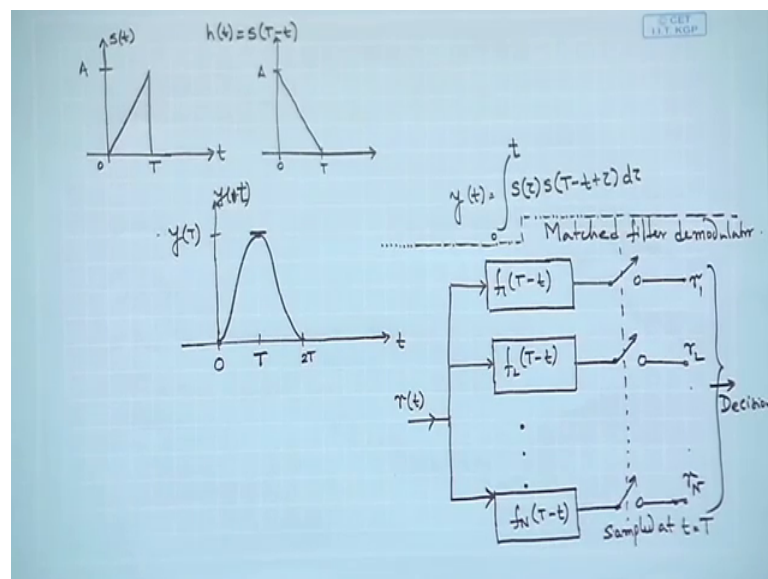 © CET
I.I.T. KGP
s(t)
A
0
T
t
h(t)=s(T-t)
A
0
T
y(t)
y(T)
0
T
2T
t
y(t)= ∫₀ᵗ s(τ) s(T-t+τ) dτ
Matched filter demodulator.
r(t)
f₁(T-t)
r₁
f₂(T-t)
r₂
Decision
f_N(T-t)
r_N
Sampled at t=T